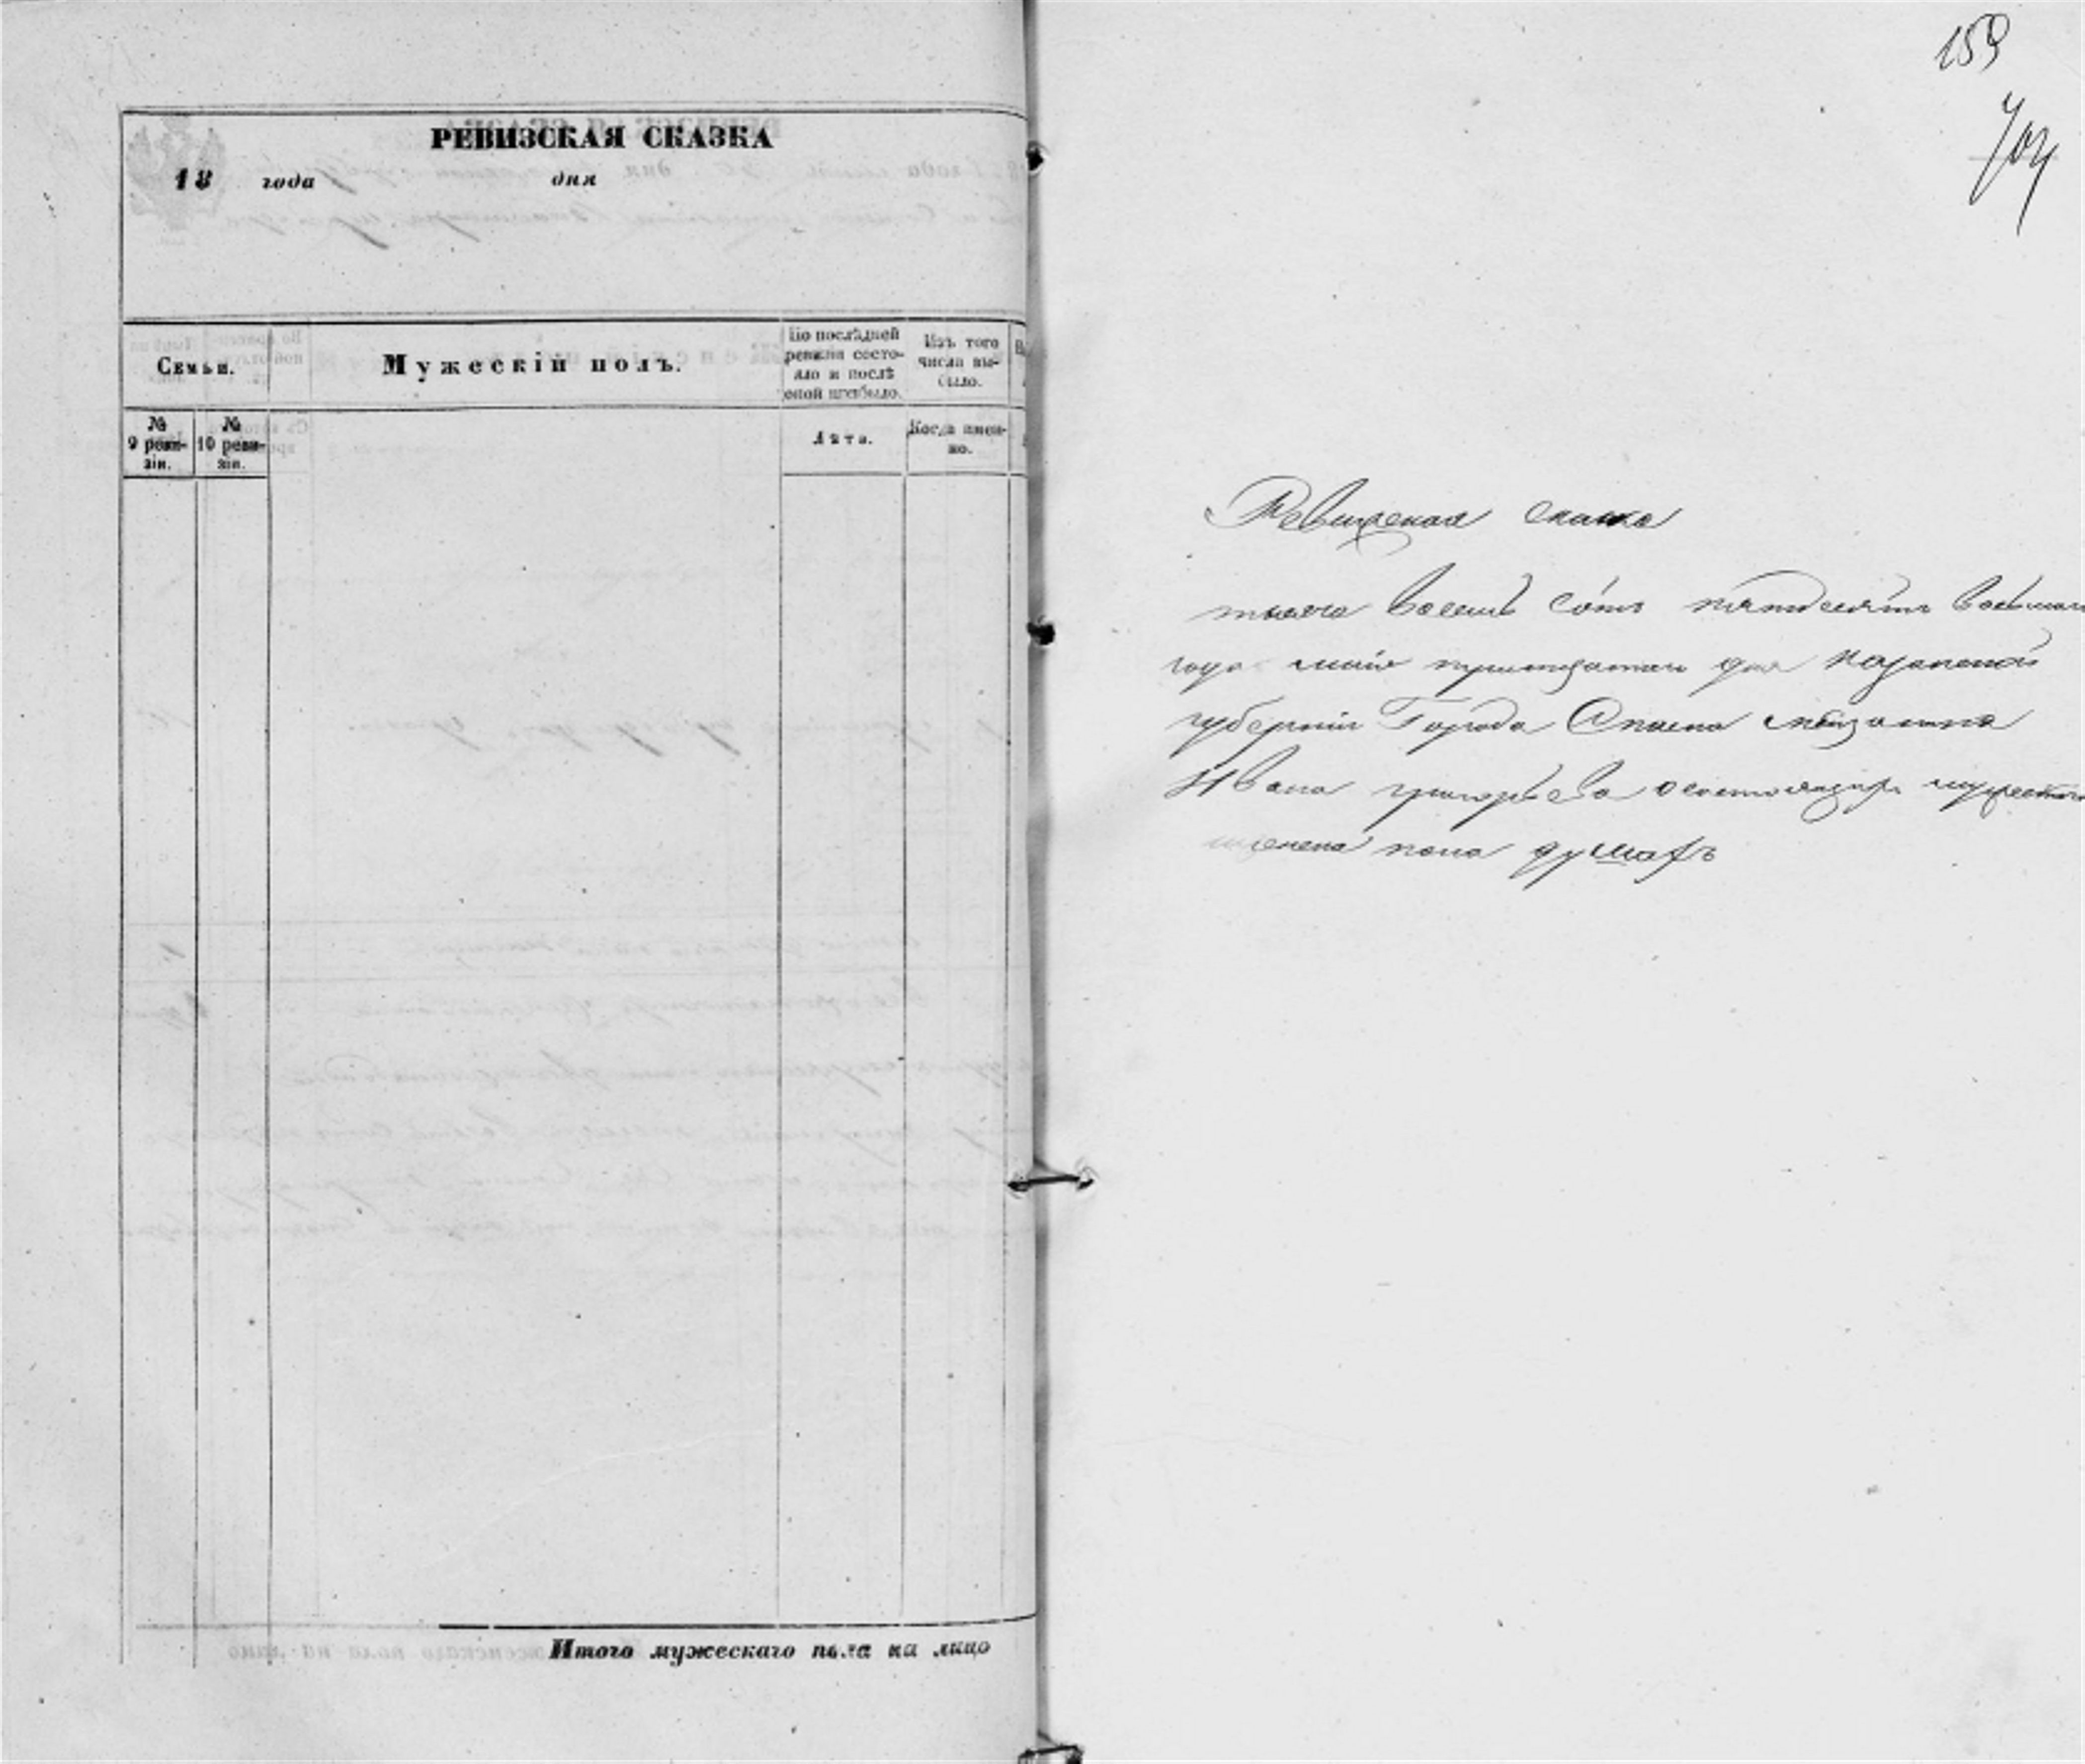 РЕВИЗСКАЯ СКАЗКА
18 года дня
Семьи.
Мужескій полъ.
По послѣдней ревизіи состояло и послѣ оной прибыло.
Изъ того числа выбыло.
№ 9 ревизіи.
№ 10 ревизіи.
Лѣта.
Когда именно.
Итого мужескаго пола на лицо
159
Ревизская сказка
тысяча восемь сотъ пятдесятъ восьмаго
года маія тритцатаго дня Казанской
губерніи Города Спаска мѣщанина
Ивана григорьева о состоящихъ мужеска
женска пола душахъ